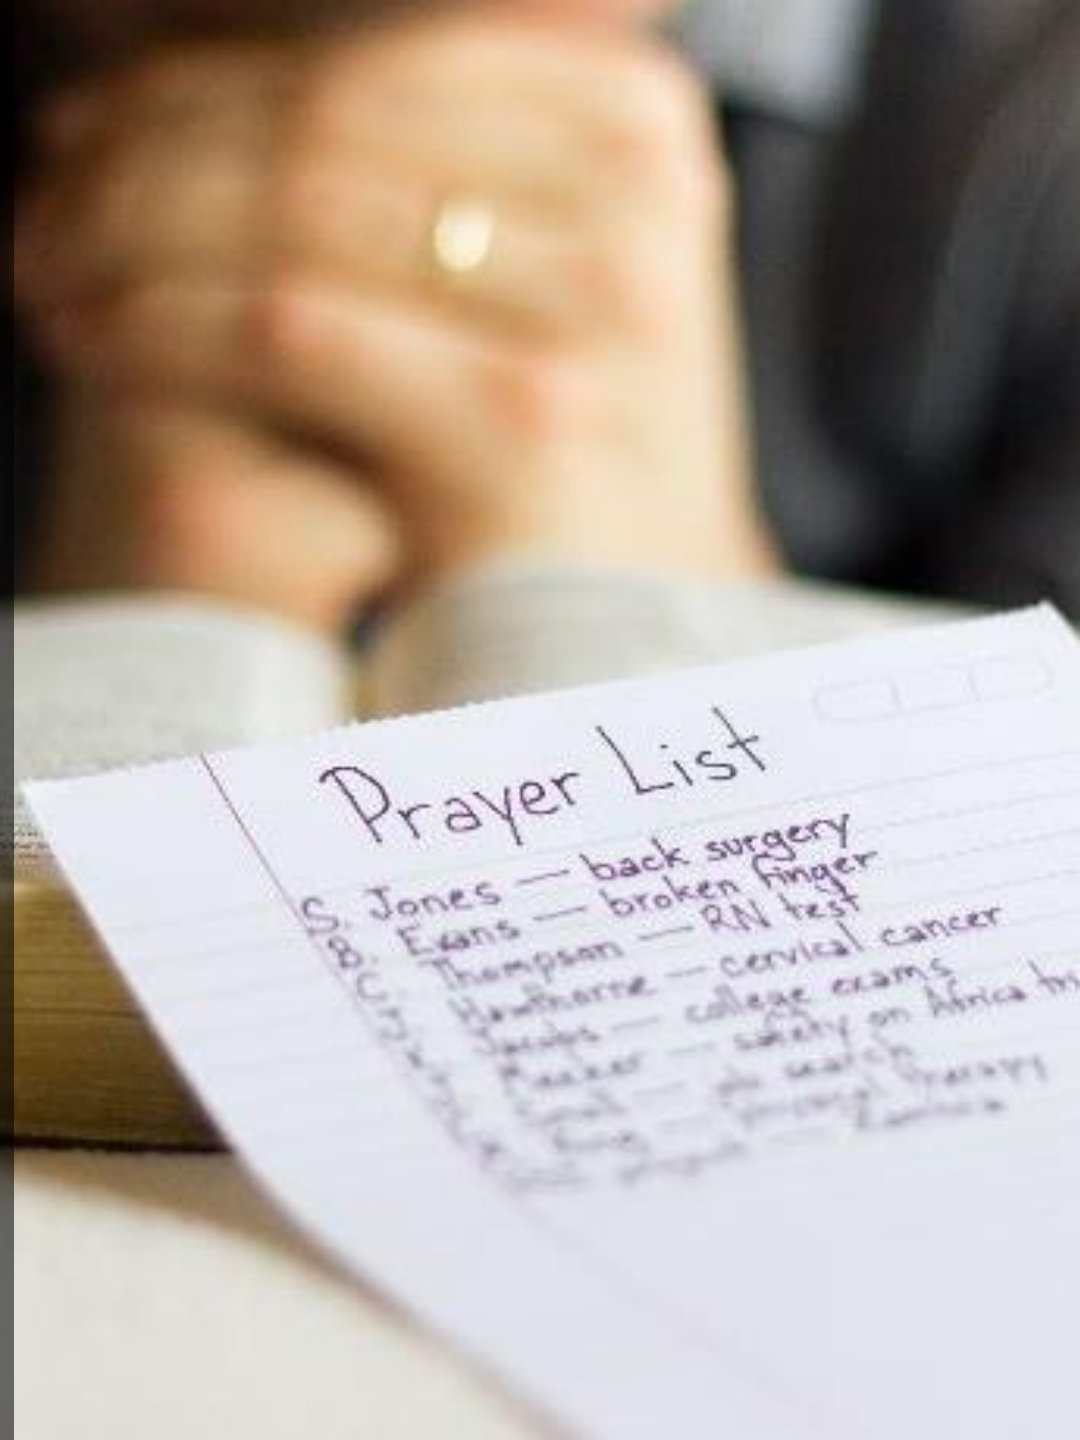 Prayer List
S. Jones — back surgery
B. Evans — broken finger
C. Thompson — RN test
Hawthorne — cervical cancer
Jacobs — college exams
— safety on Africa
King — physical therapy